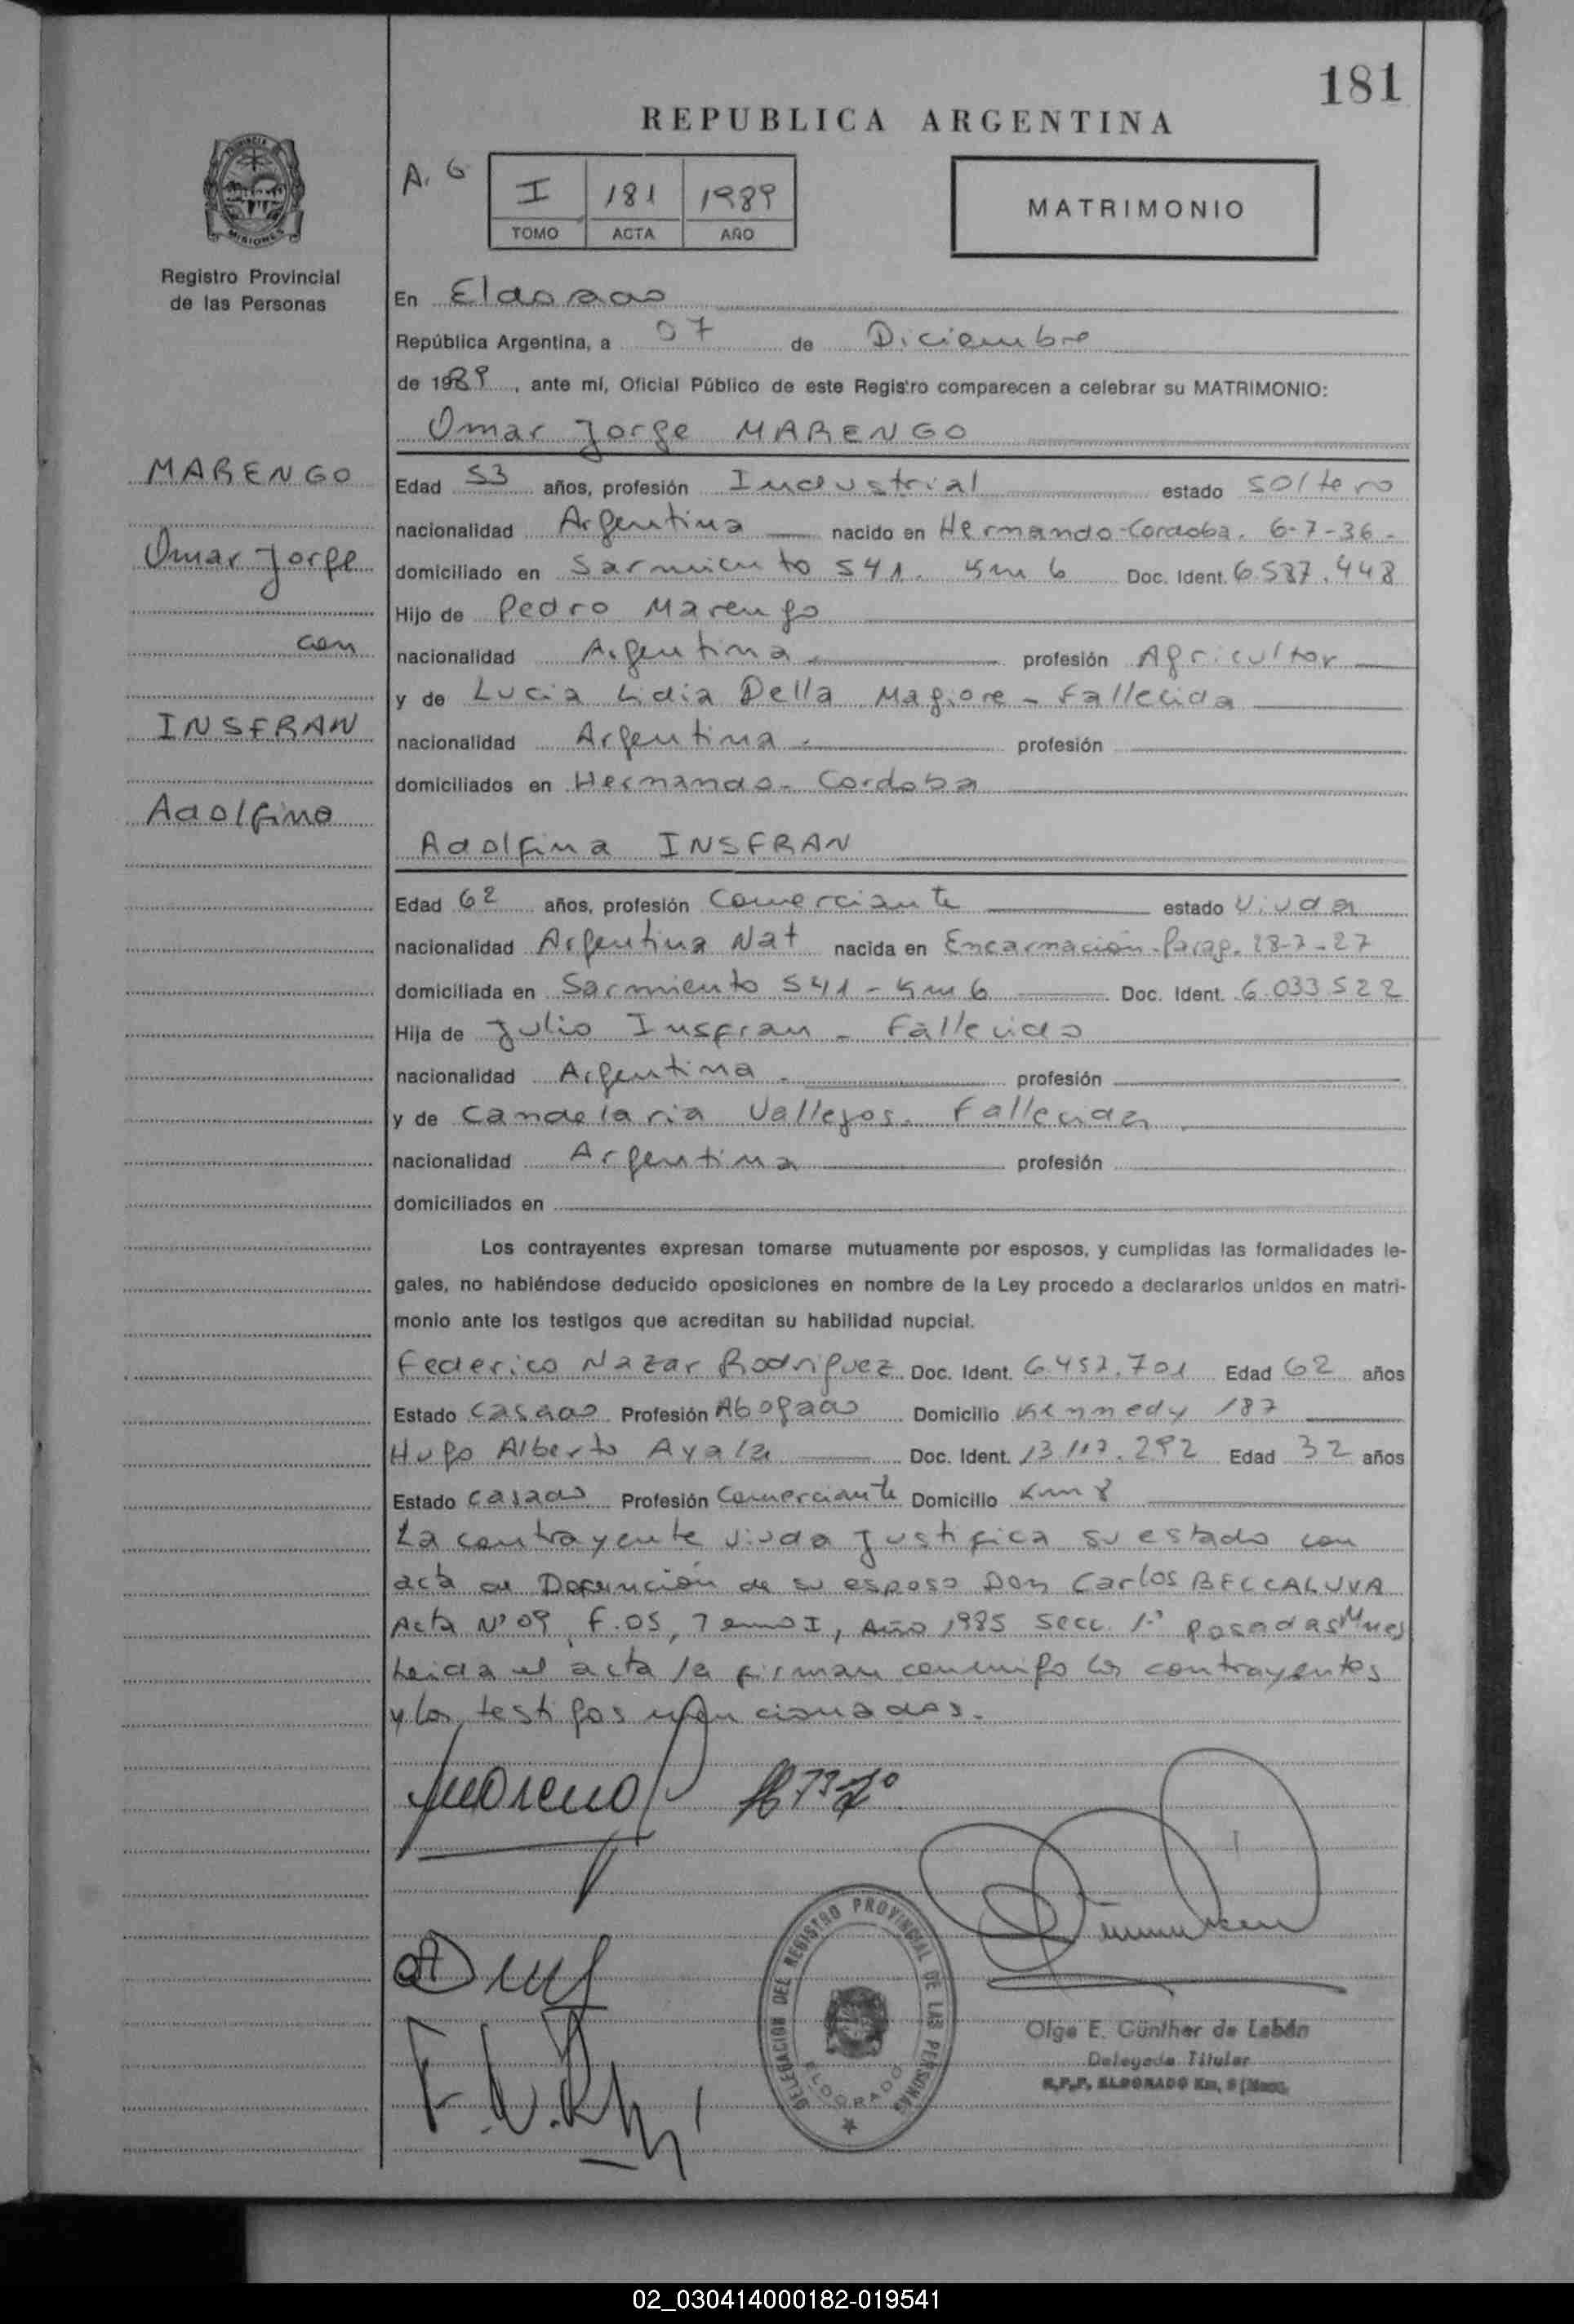 181
REPUBLICA ARGENTINA
PROVINCIA DE
MISIONES
Registro Provincial
de las Personas
A. G
I 181 1989
TOMO ACTA AÑO
MATRIMONIO
En Eldorado
República Argentina, a 07 de Diciembre
de 1989, ante mí, Oficial Público de este Registro comparecen a celebrar su MATRIMONIO:
Omar Jorge MARENGO
MARENGO
Omar Jorge
con
INSFRAN
Adolfina
Edad 53 años, profesión Industrial estado soltero
nacionalidad Argentina nacido en Hernando-Cordoba. 6-7-36-
domiciliado en Sarmiento 541. Km 6 Doc. Ident. 6.587.448
Hijo de Pedro Marengo
nacionalidad Argentina profesión Agricultor
y de Lucia Lidia Della Magiore - Fallecida
nacionalidad Argentina. profesión
domiciliados en Hernando- Cordoba
Adolfina INSFRAN
Edad 62 años, profesión Comerciante estado viuda
nacionalidad Argentina Nat nacida en Encarnación-Parag. 28-7-27
domiciliada en Sarmiento 541 - Km 6 Doc. Ident. 6.033522
Hija de Julio Insfran - Fallecido
nacionalidad Argentina - profesión
y de Candelaria Vallejos. Fallecida
nacionalidad Argentina profesión
domiciliados en
Los contrayentes expresan tomarse mutuamente por esposos, y cumplidas las formalidades le-
gales, no habiéndose deducido oposiciones en nombre de la Ley procedo a declararlos unidos en matri-
monio ante los testigos que acreditan su habilidad nupcial.
Federico Nazar Rodriguez Doc. Ident. 6.457.701 Edad 62 años
Estado casado Profesión Abogado Domicilio Kennedy 187
Hugo Alberto Ayala Doc. Ident. 13.117.292 Edad 32 años
Estado casado Profesión Comerciante Domicilio Km 8
La contrayente viuda justifica su estado con
acta de Defunción de su esposo Don Carlos BECCALUVA
Acta Nº 09, F.05, Tomo I, Año 1985 Secc. 1ª Posadas Mnes
Leida el acta la firman conmigo los contrayentes
y los testigos mencionados.
DELEGACION DEL REGISTRO PROVINCIAL DE LAS PERSONAS
ELDORADO
Olga E. Günther de Labán
Delegada Titular
R.P.P. ELDORADO Km.
02_030414000182-019541